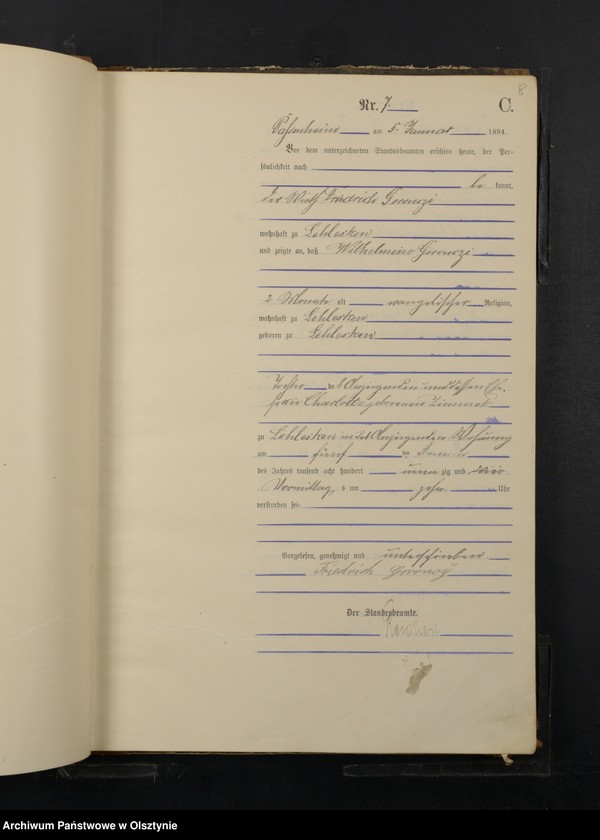 8
Nr. 7. C.
Passenheim am 5. Januar 1894.
Vor dem unterzeichneten Standesbeamten erschien heute, der Per-
sönlichkeit nach
be kannt,
der Wirth Friedrich
wohnhaft zu Lehlesken
und zeigte an, daß Wilhelmine
2 Monate alt evangelischer Religion,
wohnhaft zu Lehlesken
geboren zu Lehlesken
Tochter des Anzeigenden und dessen Ehe-
frau Charlotte geborenen
zu Lehlesken in des Anzeigenden Wohnung
am fünf ten Januar
des Jahres tausend acht hundert neun zig und vier
Vormittags um zehn Uhr
verstorben sei.
Vorgelesen, genehmigt und unterschrieben
Friedrich
Der Standesbeamte.
Archiwum Państwowe w Olsztynie